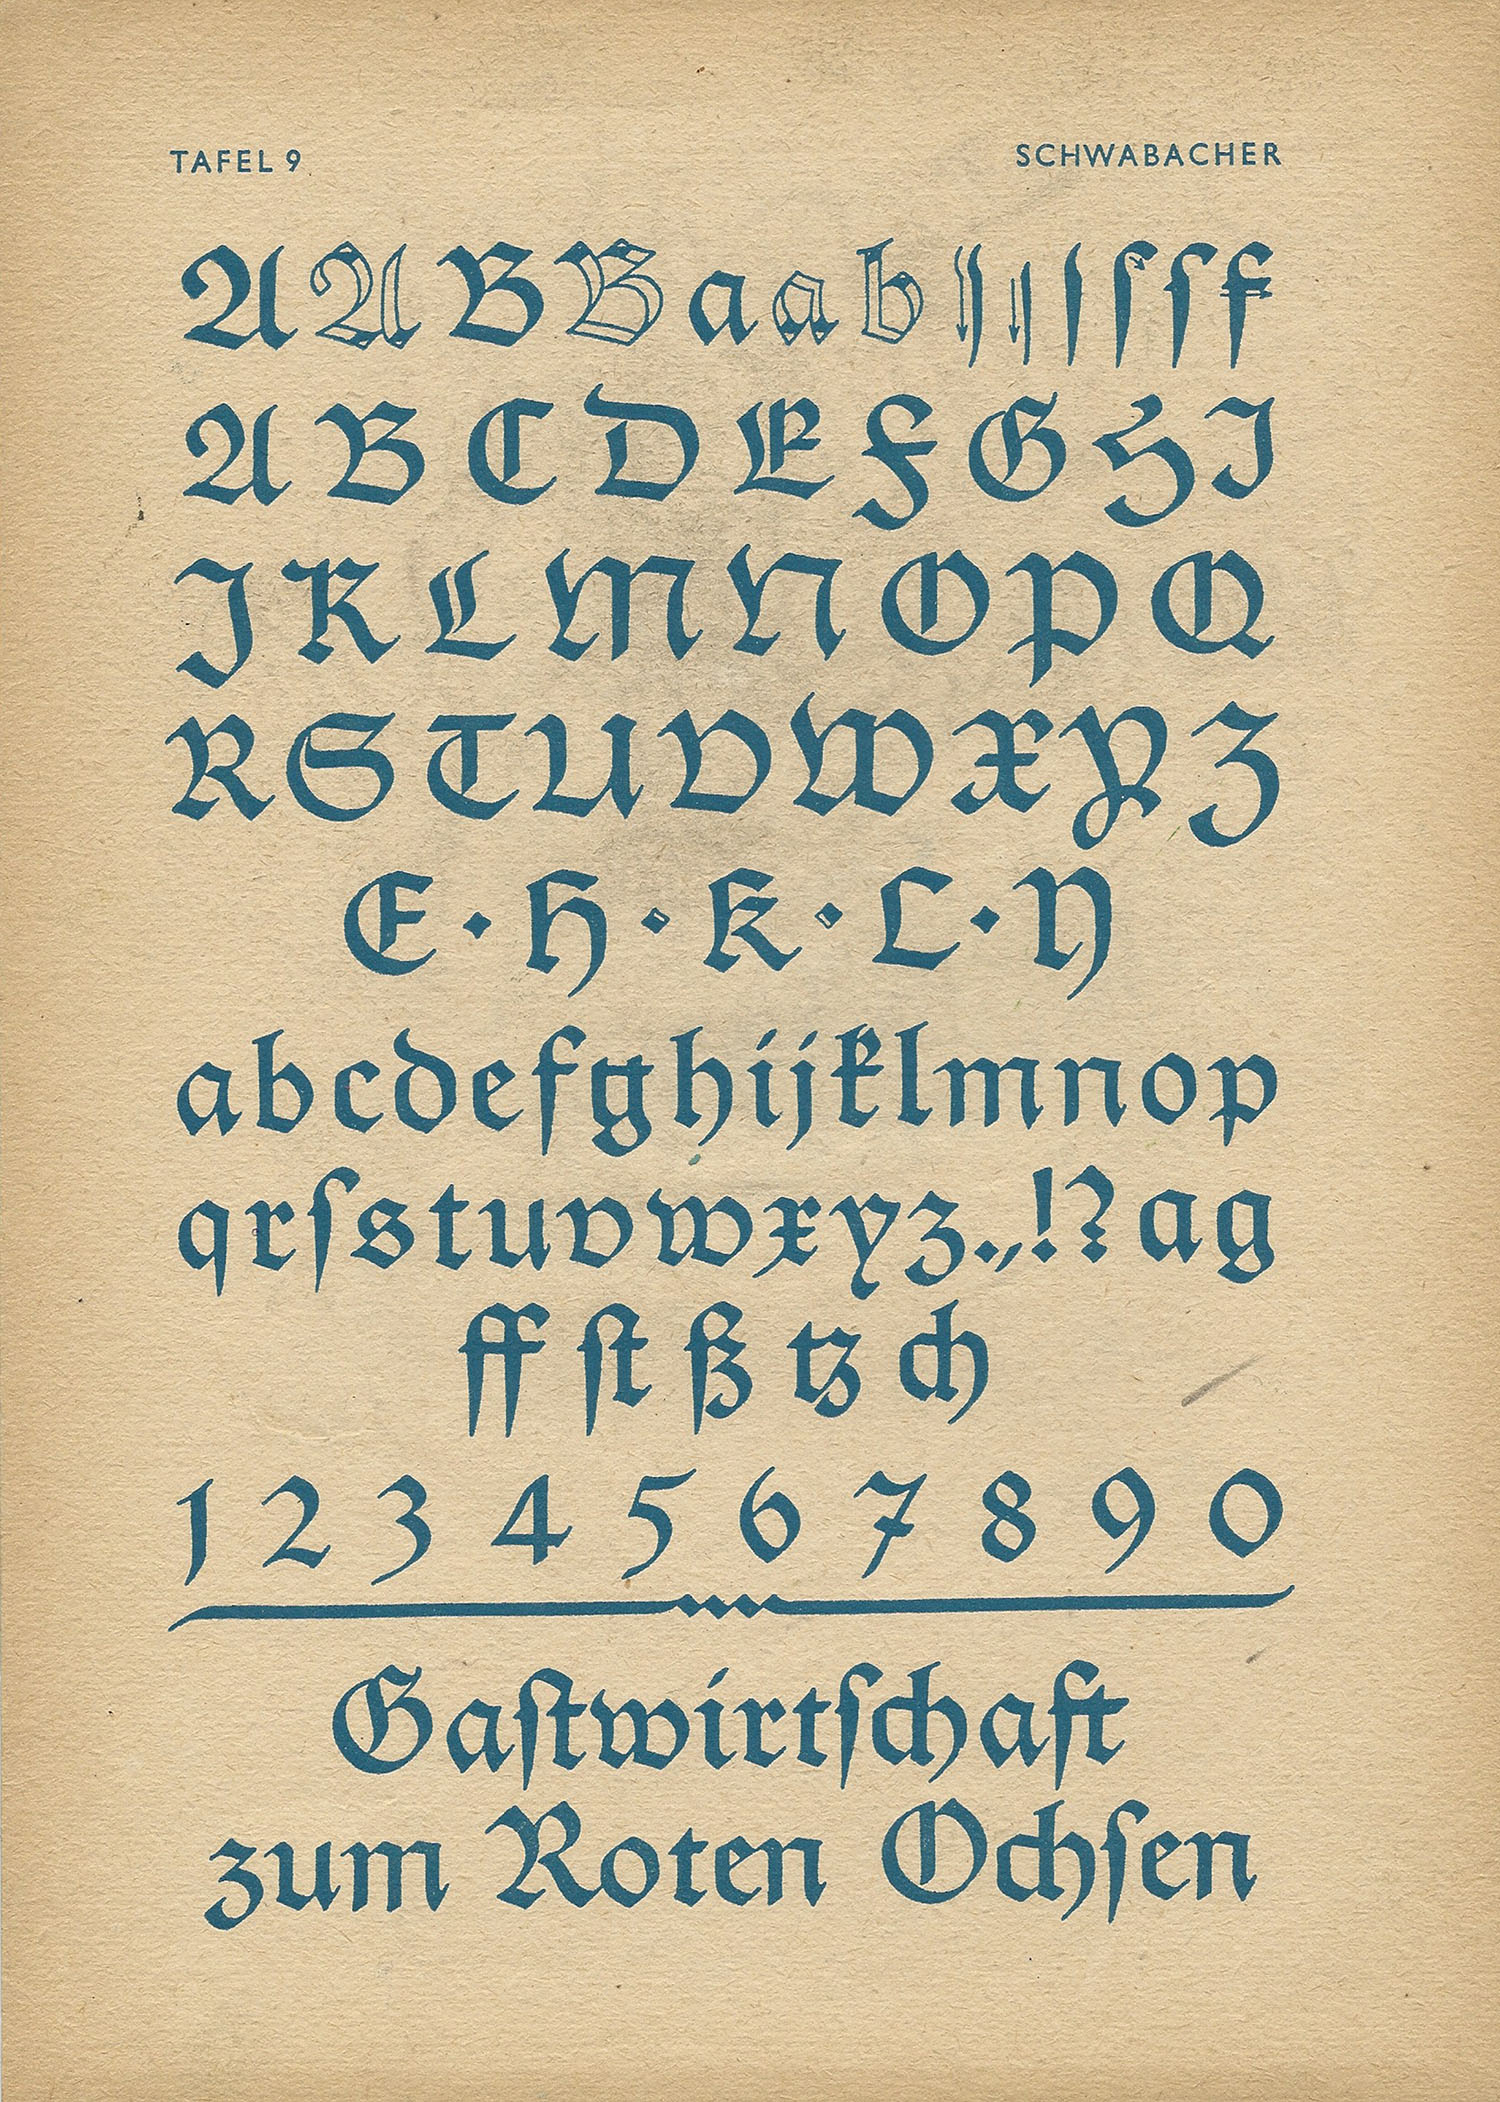 TAFEL 9 SCHWABACHER
A A B B a a b ſ ſ f
A B C D E F G H I
J K L M N O P Q
R S T U V W X Y Z
E · H · K · L · Y
a b c d e f g h i j k l m n o p
q r ſ s t u v w x y z . , ! ? a g
ff ſt ß tz ch
1 2 3 4 5 6 7 8 9 0
Gaſtwirtſchaft
zum Roten Ochſen